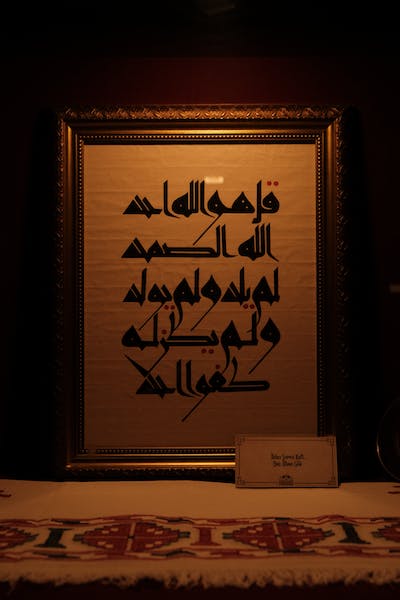 قل هو الله احد
الله الصمد
لم يلد ولم يولد
ولم يكن له
كفوا احد